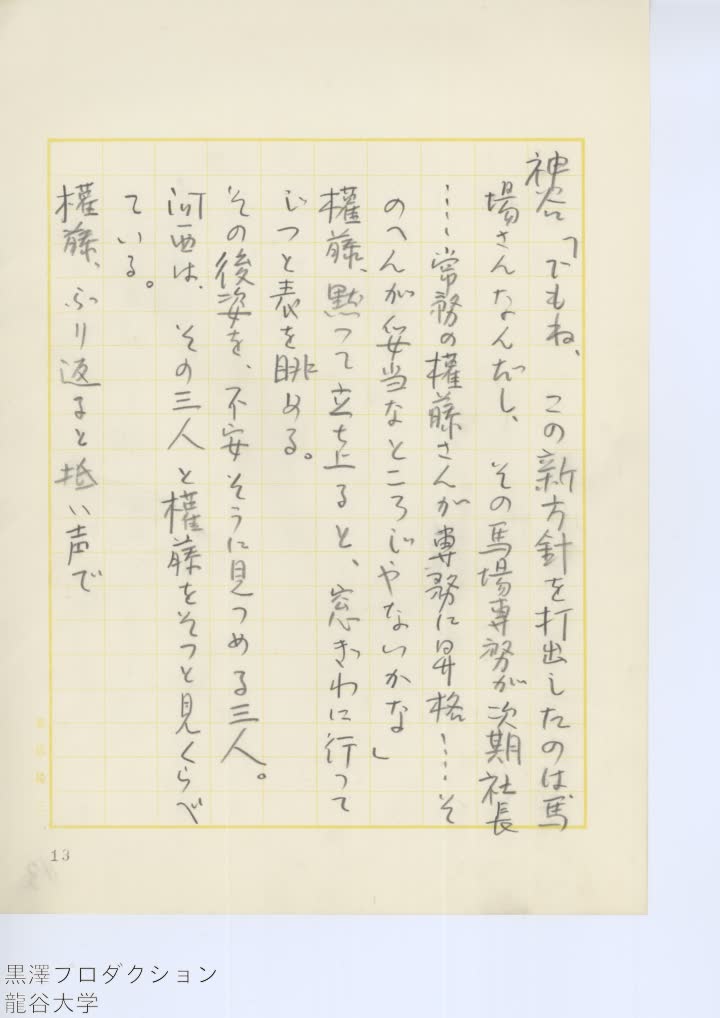 神谷「でもね、この新方針を打出したのは馬
場さんなんだし、その馬場専務が次期社長
……常務の權藤さんが専務に昇格……そ
のへんが妥当なところじやないかな」
權藤、黙つて立ち上ると、窓ぎわに行つて
じつと表を眺める。
その後姿を、不安そうに見つめる三人。
河西は、その三人と權藤をそつと見くらべ
ている。
權藤、ふり返ると抵い声で
13
黒澤プロダクション
龍谷大学